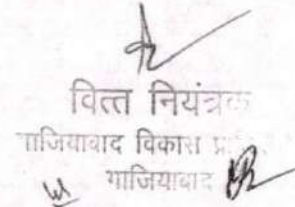 वित्त नियंत्रक
गाजियाबाद विकास
गाजियाबाद